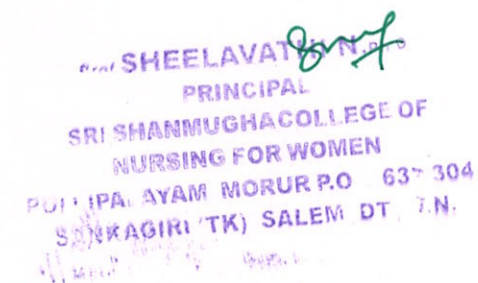 Prof SHEELAVATHI N.
PRINCIPAL
SRI SHANMUGHACOLLEGE OF
NURSING FOR WOMEN
PULLIPALAYAM MORUR P.O 637 304
SANKAGIRI (TK) SALEM DT T.N.